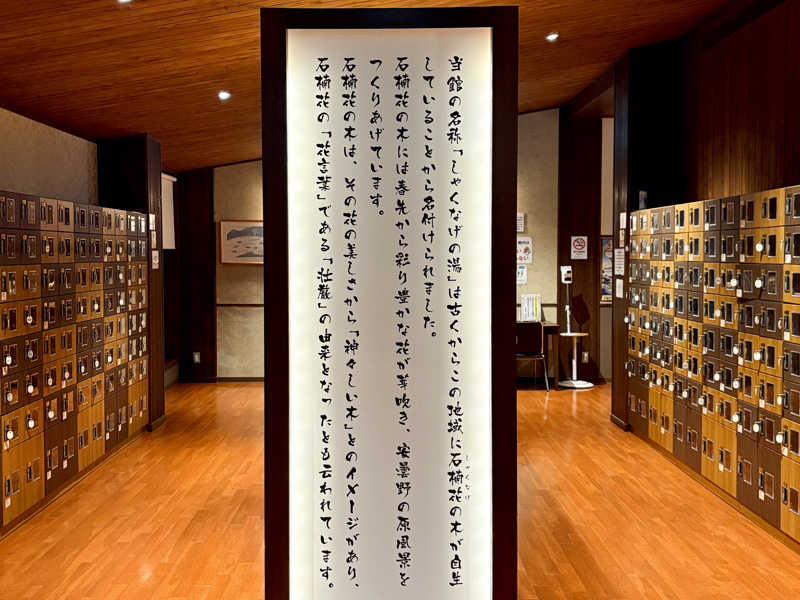 当館の名称「しゃくなげの湯」は古くからこの地域に石楠花の木が自生
しゃくなげ
していることから名付けられました。
石楠花の木には春先から彩り豊かな花が芽吹き、安曇野の原風景を
つくりあげています。
石楠花の木は、その花の美しさから「神々しい木」とのイメージがあり、
石楠花の「花言葉」である「壮厳」の由来となったとも云われています。